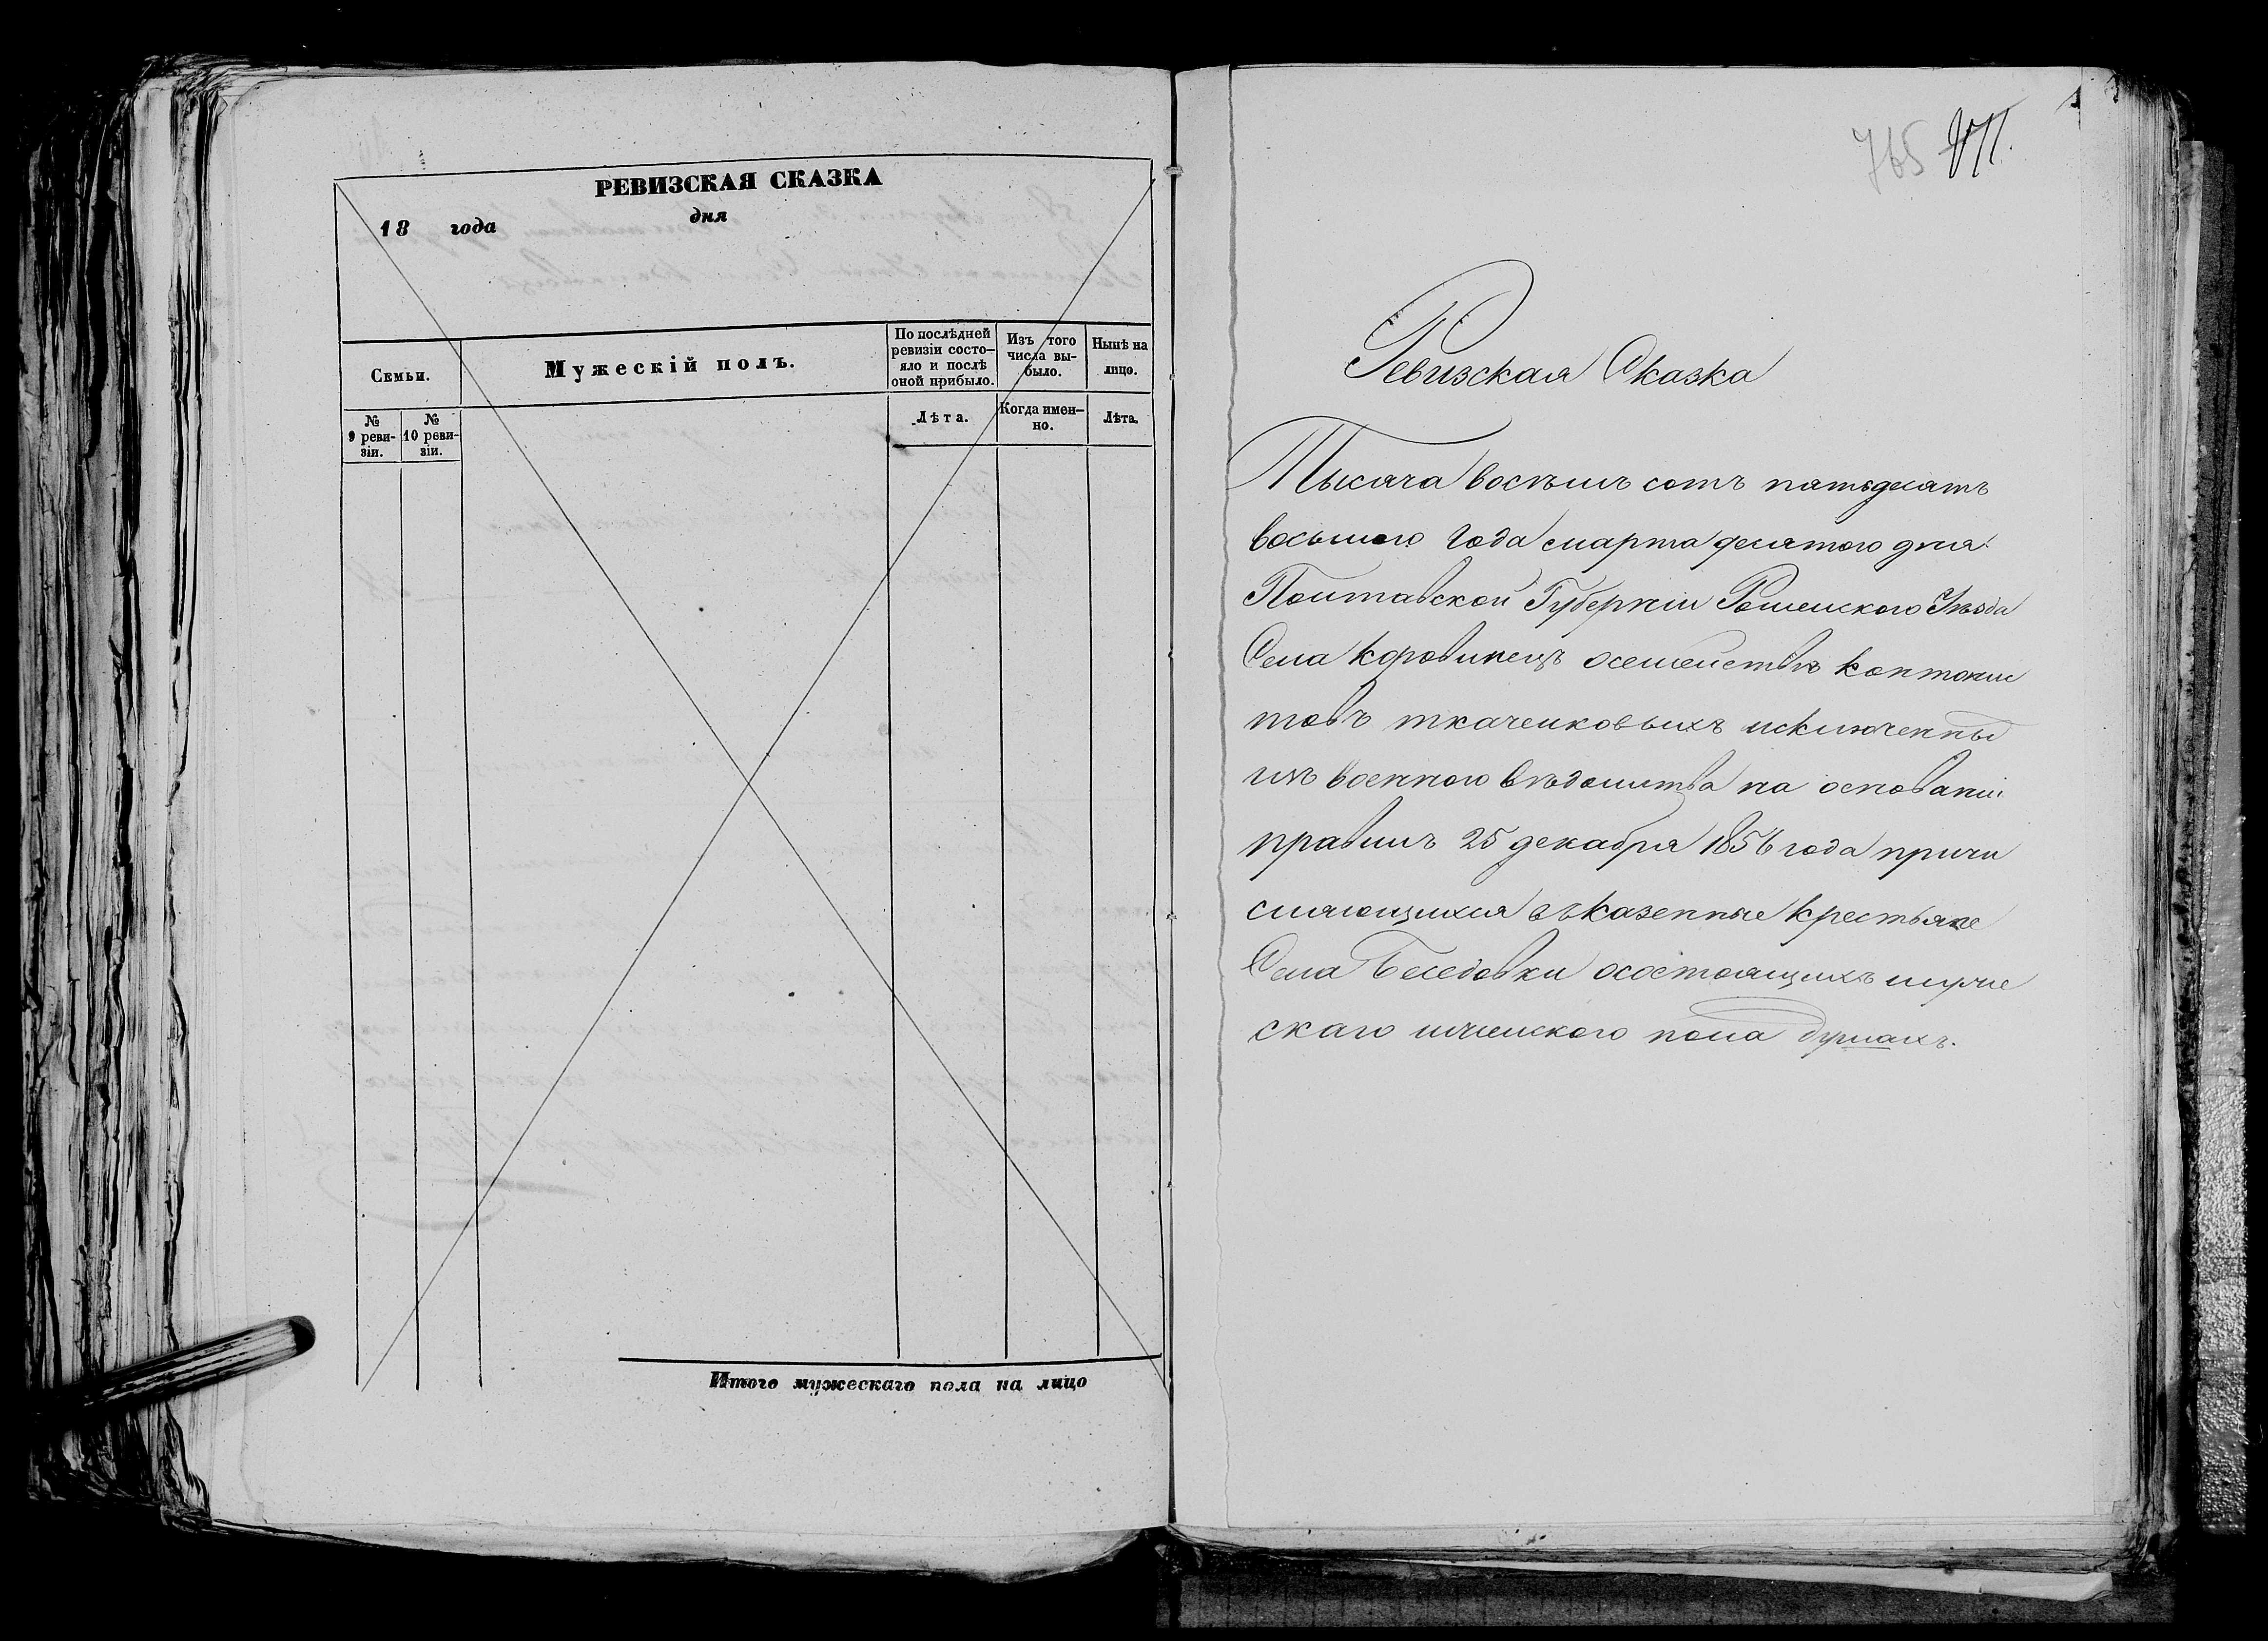 РЕВИЗСКАЯ СКАЗКА
18 года дня
Семьи.
Мужескій полъ.
По послѣдней
ревизіи состо-
яло и послѣ
оной прибыло.
Изъ того
числа вы-
было.
Нынѣ на
лицо.
№
9 реви-
зіи.
№
10 реви-
зіи.
Лѣта.
Когда имен-
но.
Лѣта.
Итого мужескаго пола на лицо
765 VII.
Ревизская Сказка
Тысяча восемь сотъ пятьдесятъ
восьмого года марта десятого дня
Полтавской Губерніи Роменского Уѣзда
Села Коровинецъ осемействѣ кантонис
товъ ткаченковыхъ исключенны
изъ военного вѣдомства на основаніи
правилъ 25 декабря 1856 года причи
сляющихся въ казенные крестьяне
Села Беседовки осостоящихъ мужес
скаго иженского пола душахъ.